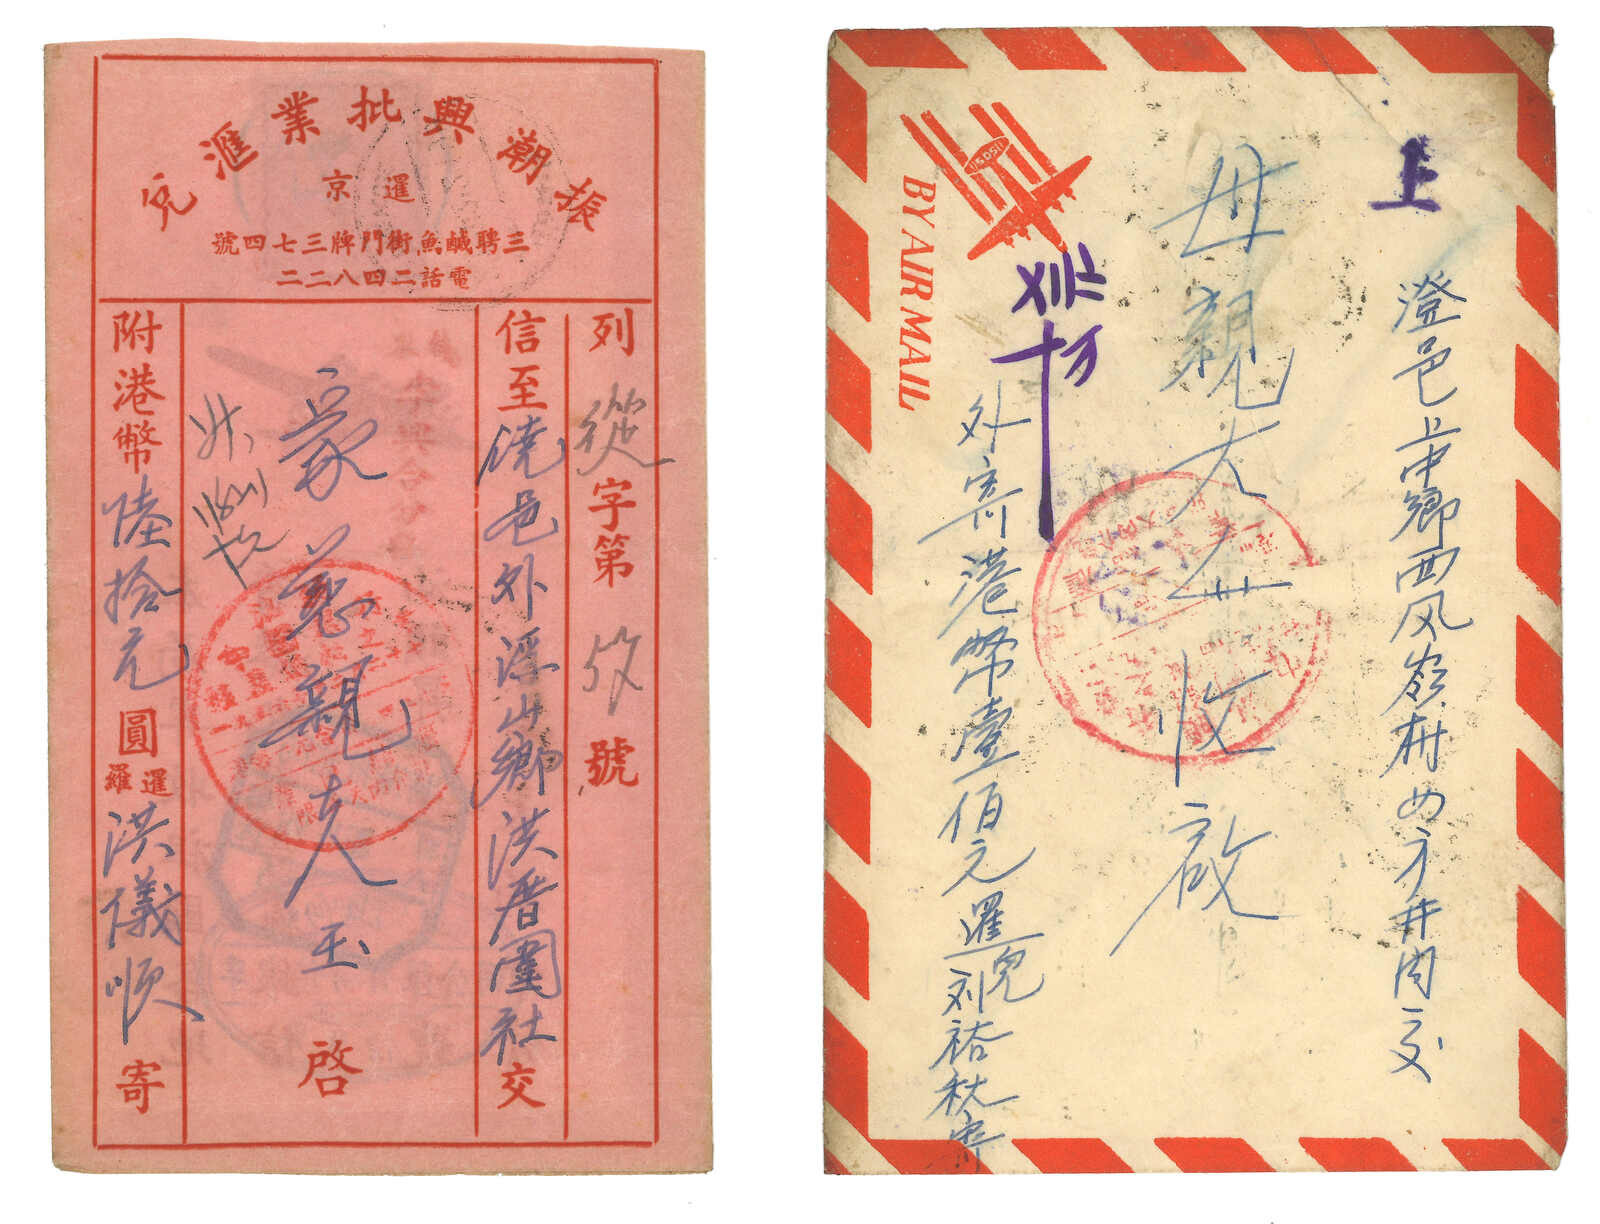 振潮興批業滙兌
暹京
三聘鹹魚街門牌三七四號
電話二四八二二
列 從 字第 號
信至饒邑外浮山鄉洪厝圍社 交
家慈親大人 玉 啓
附港幣陸拾元 圓 暹羅 洪儀順 寄
上
澄邑上中鄉西风嶺村四方井內交
母親大人收啟
十万
外寄港幣壹佰元暹兒刘裕秋寄
BY AIR MAIL